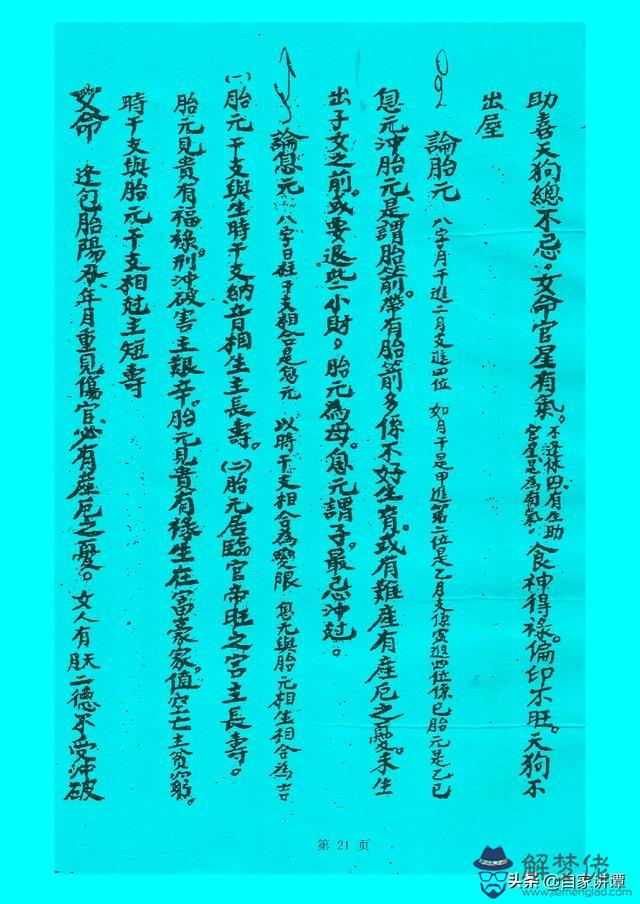 助喜天狗總不忌。女命官星有氣。不逢休囚有生助官星是為有氣，食神得祿。偏印不旺。天狗不
出屋
論胎元 八字月干進一月支進四位 如月干是甲進第二位是乙月支係寅進四位係巳胎元是乙巳
息元沖胎元是謂胎箭帶有胎箭多係不好生育。或有難產有產厄之憂。未生
出子女之前。或要退些小財，胎元為母。息元謂子。最忌沖尅。
論息元 八字日柱干支相合是息元 以時干支相合為變限 息元與胎元相生相合為吉
(一)胎元干支與生時干支納音相生主長壽。(二)胎元居臨官帝旺之宮主長壽。
胎元見貴有福祿。刑沖破害主艱辛。胎元見貴有祿生在富豪家。值空亡主貧窮。
時干支與胎元干支相尅主短壽
女命 逆包胎陽刃、年月重見傷官必有產厄之憂。女人有天二德不受沖破
第 21 页
解梦佬
www.jiemenglao.com
头条 @自家讲谭